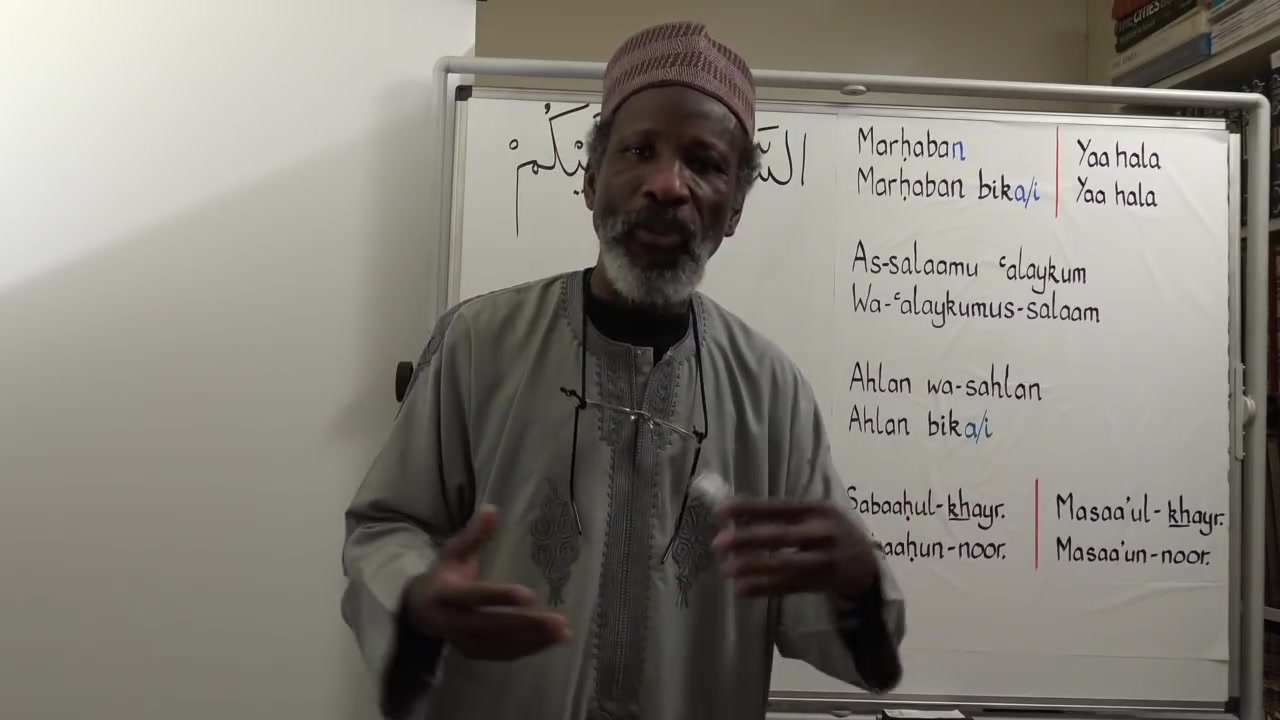 Marḥaban
Marḥaban bika/i
Yaa hala
Yaa hala
As-salaamu ʿalaykum
Wa-ʿalaykumus-salaam
Ahlan wa-sahlan
Ahlan bika/i
Sabaaḥul-khayr.
-noor.
Masaa'ul-khayr.
Masaa'un-noor.